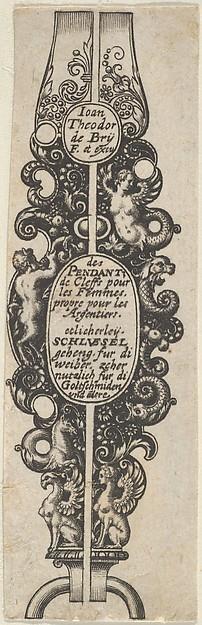 Ioan
Theodor
de Brÿ
F. et excu
des
PENDANTs
de Cleffs pour
les Femmes.
propre pour les
Argentiers.
etlicherleÿ.
SCHLVESEL
geheng. fur di
weiber. zcher
nutzlich fur di
Goltschmiden
vnd dere.